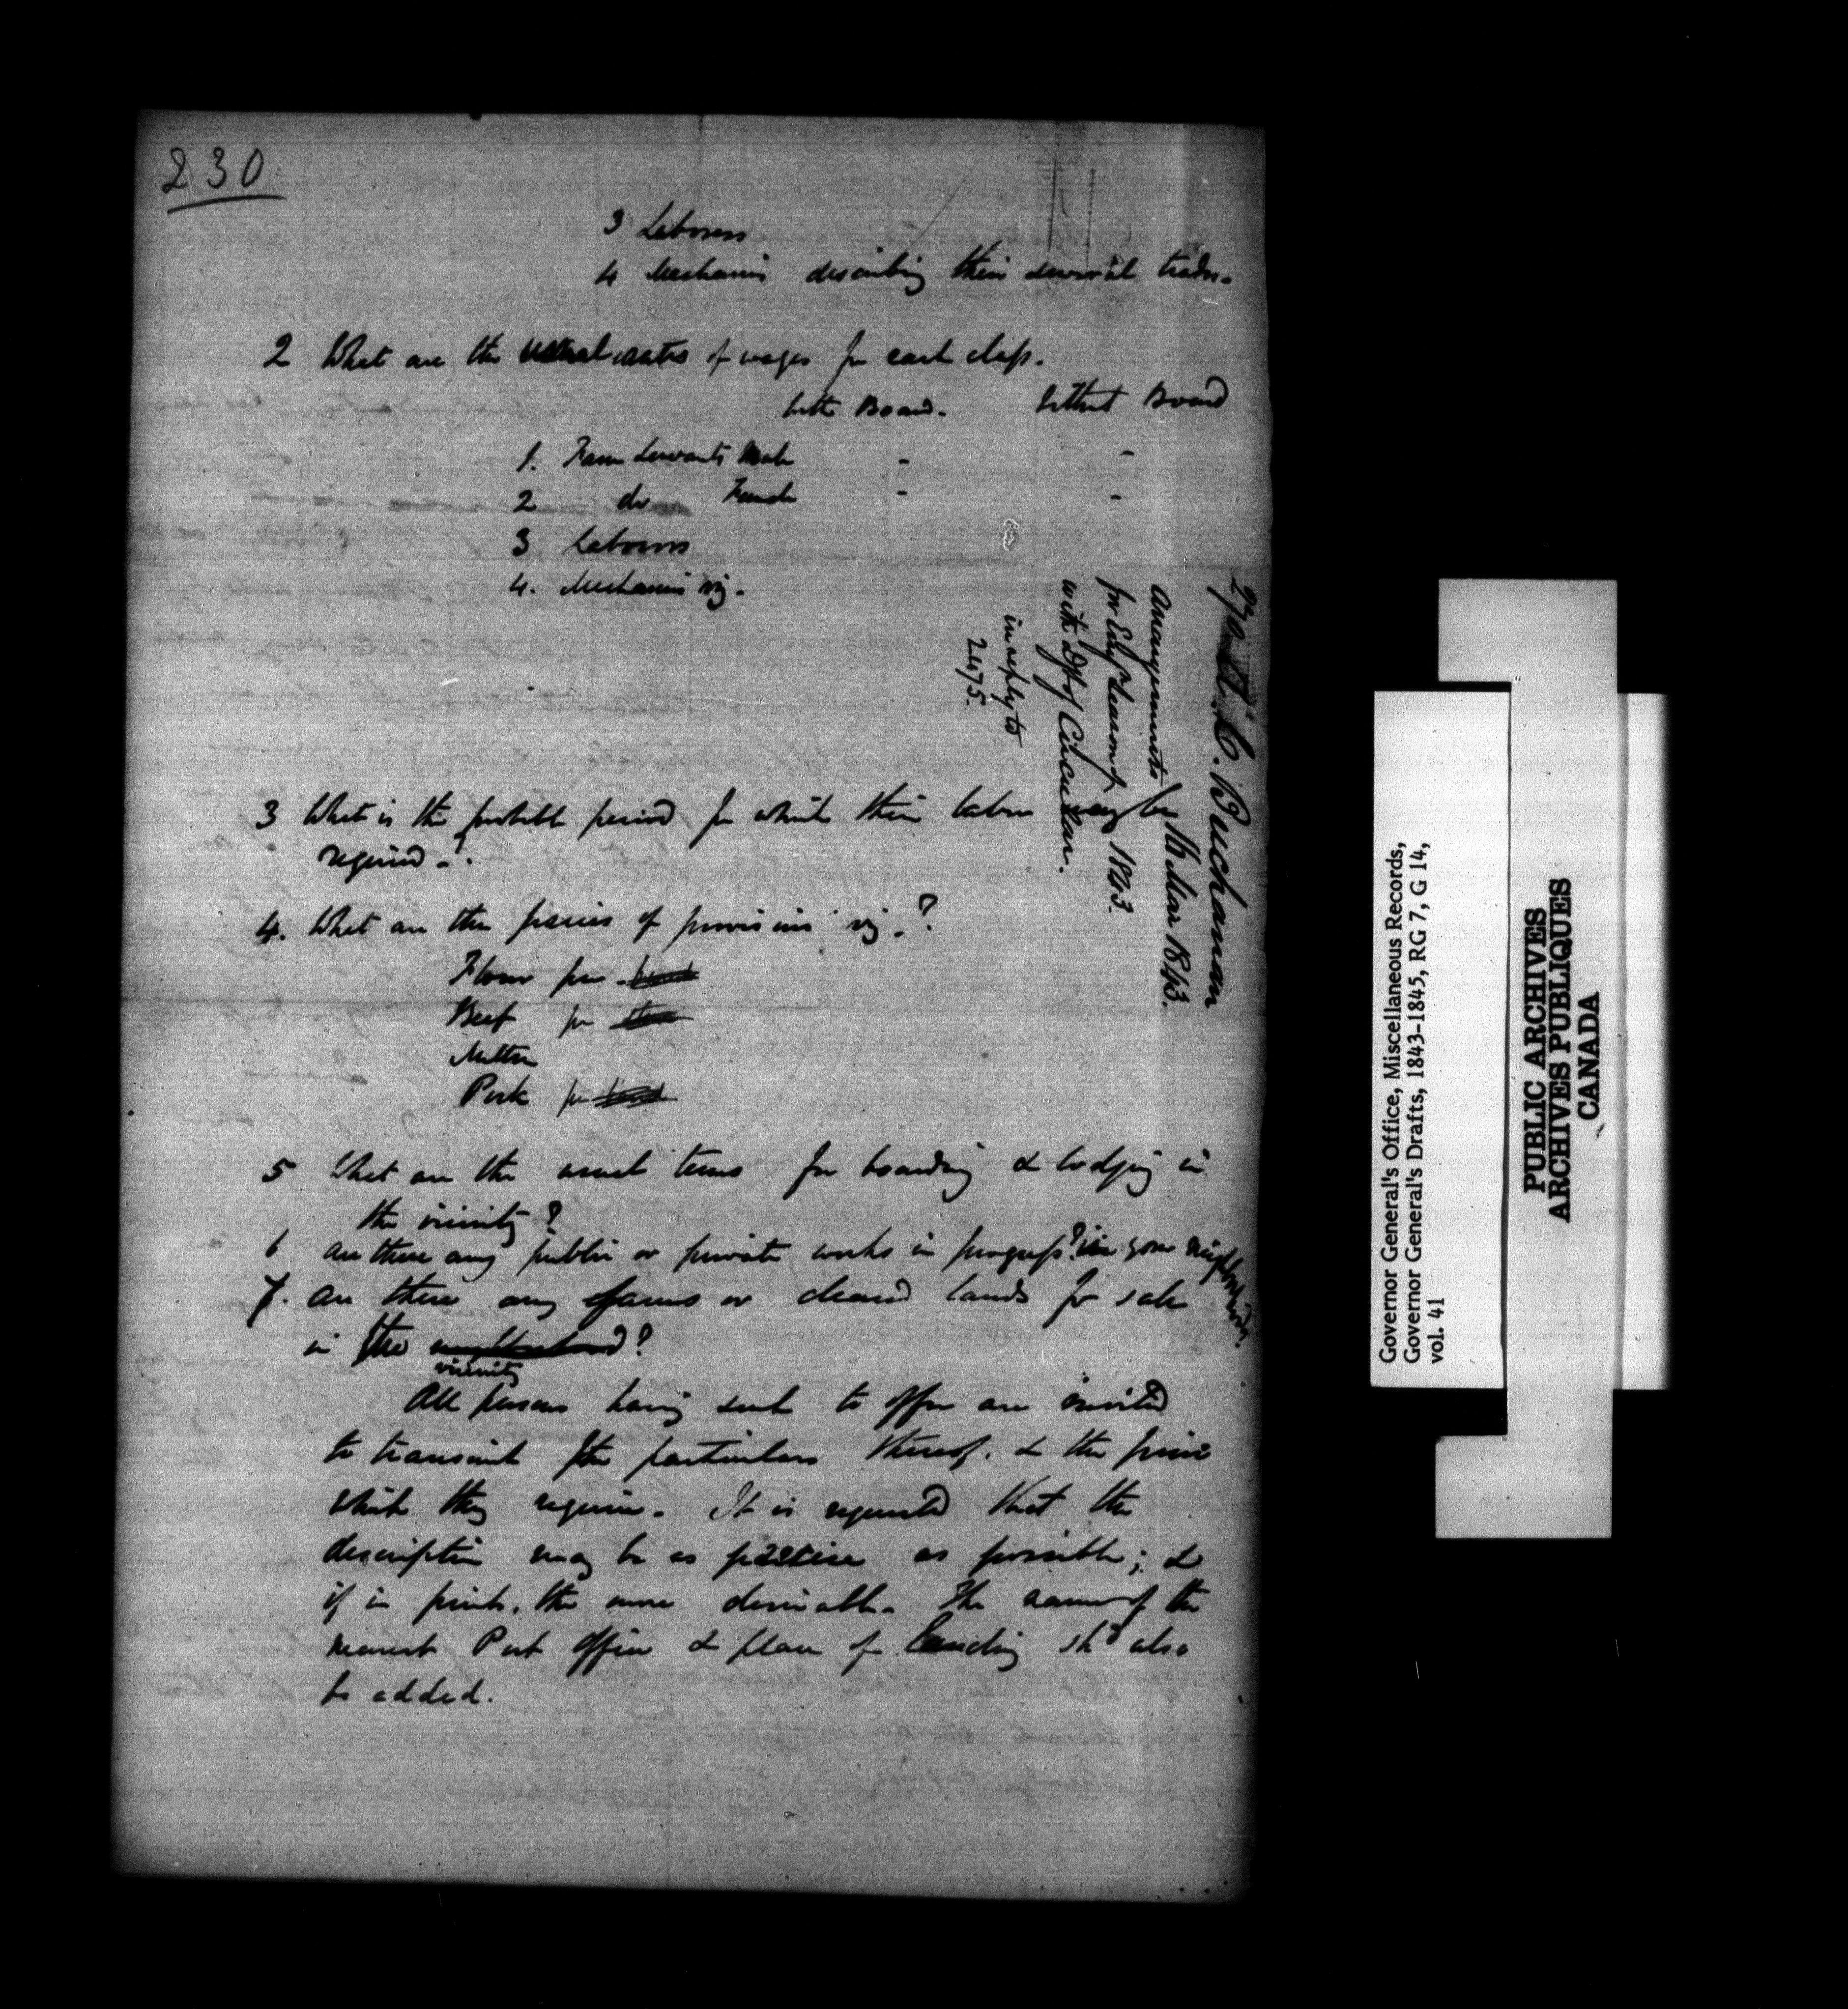 230
3 Laborers
4 Mechanics describing their several trades.
2 What are the usual rates of wages for each class.
With Board. Without Board
1. Farm Servants Male - -
2 do Female - -
3 Laborers
4. Mechanics viz.
3 What is the probable period for which their labor may be
required.?
4. What are the prices of provisions viz.?
Flour per
Beef per
Mutton
Pork per
5 What are the usual terms for boarding & lodging in
the vicinity?
6 Are there any public or private works in progress? in your neighborhood
7. Are there any farms or cleared lands for sale
in the neighborhood?
vicinity
All persons having such to offer are invited
to transmit the particulars thereof. & the price
which they require. It is requested that the
description may be as precise as possible; &
if in print, the more desirable. The name of the
nearest Post Office & place of landing shd also
be added.
A. C. Buchanan
16 Mar 1843.
Arrangements
for Emign Season of 1843.
with Dft of Circular.
in reply to
2475.
Governor General's Office, Miscellaneous Records,
Governor General's Drafts, 1843-1845, RG 7, G 14,
vol. 41
PUBLIC ARCHIVES
ARCHIVES PUBLIQUES
CANADA